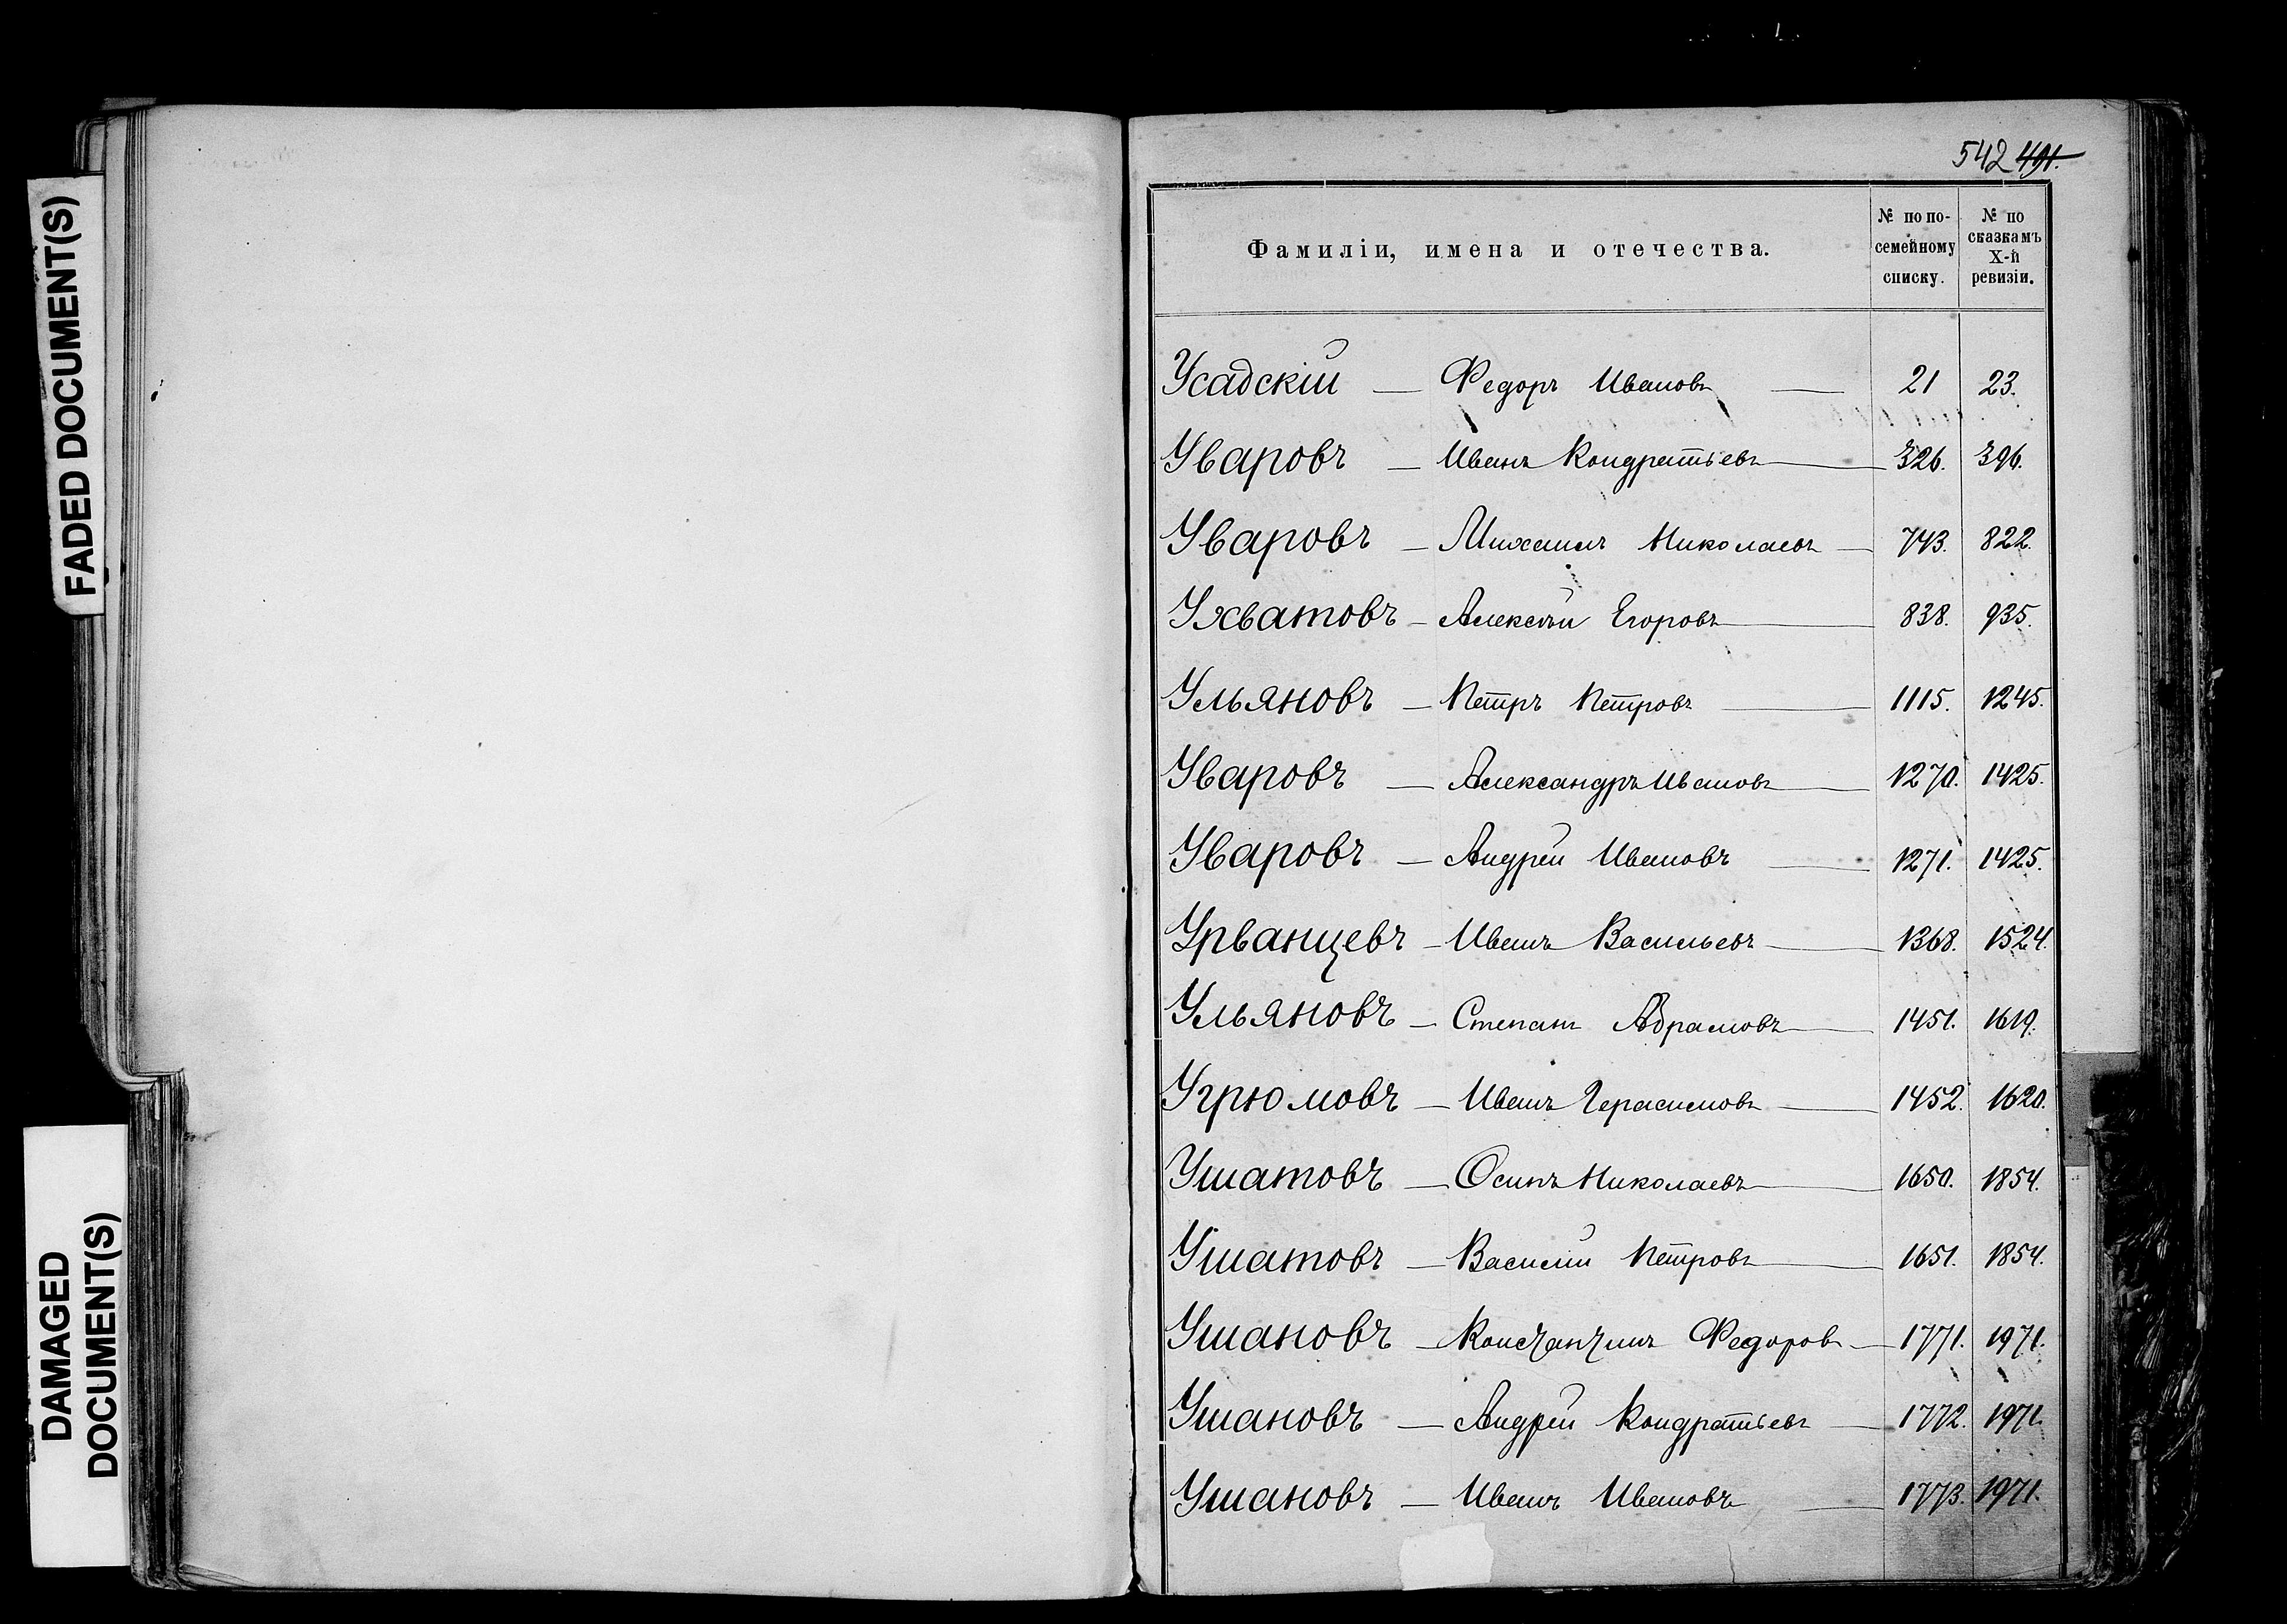 FADED DOCUMENT(S)
DAMAGED
DOCUMENT(S)
542 491.
Фамиліи, имена и отечества.
№ по по-
семейному
списку.
№ по
сказкамъ
X-й
ревизіи.
Усадскій — Федоръ Ивановъ — 21 23.
Уваровъ — Иванъ Кондратьевъ — 326. 396.
Уваровъ — Михаилъ Николаевъ — 743. 822.
Ухватовъ — Алексѣй Егоровъ — 838. 935.
Ульяновъ — Петръ Петровъ — 1115. 1245.
Уваровъ — Александръ Ивановъ — 1270. 1425.
Уваровъ — Андрей Ивановъ — 1271. 1425.
Урванцевъ — Иванъ Васильевъ — 1368. 1524.
Ульяновъ — Степанъ Абрамовъ — 1451. 1619.
Угрюмовъ — Иванъ Герасимовъ — 1452. 1620.
Ушатовъ — Осипъ Николаевъ — 1650. 1854.
Ушатовъ — Василій Петровъ — 1651. 1854.
Ушановъ — Константинъ Федоровъ — 1771. 1971.
Ушановъ — Андрей Кондратьевъ — 1772. 1971.
Ушановъ — Иванъ Ивановъ — 1773. 1971.